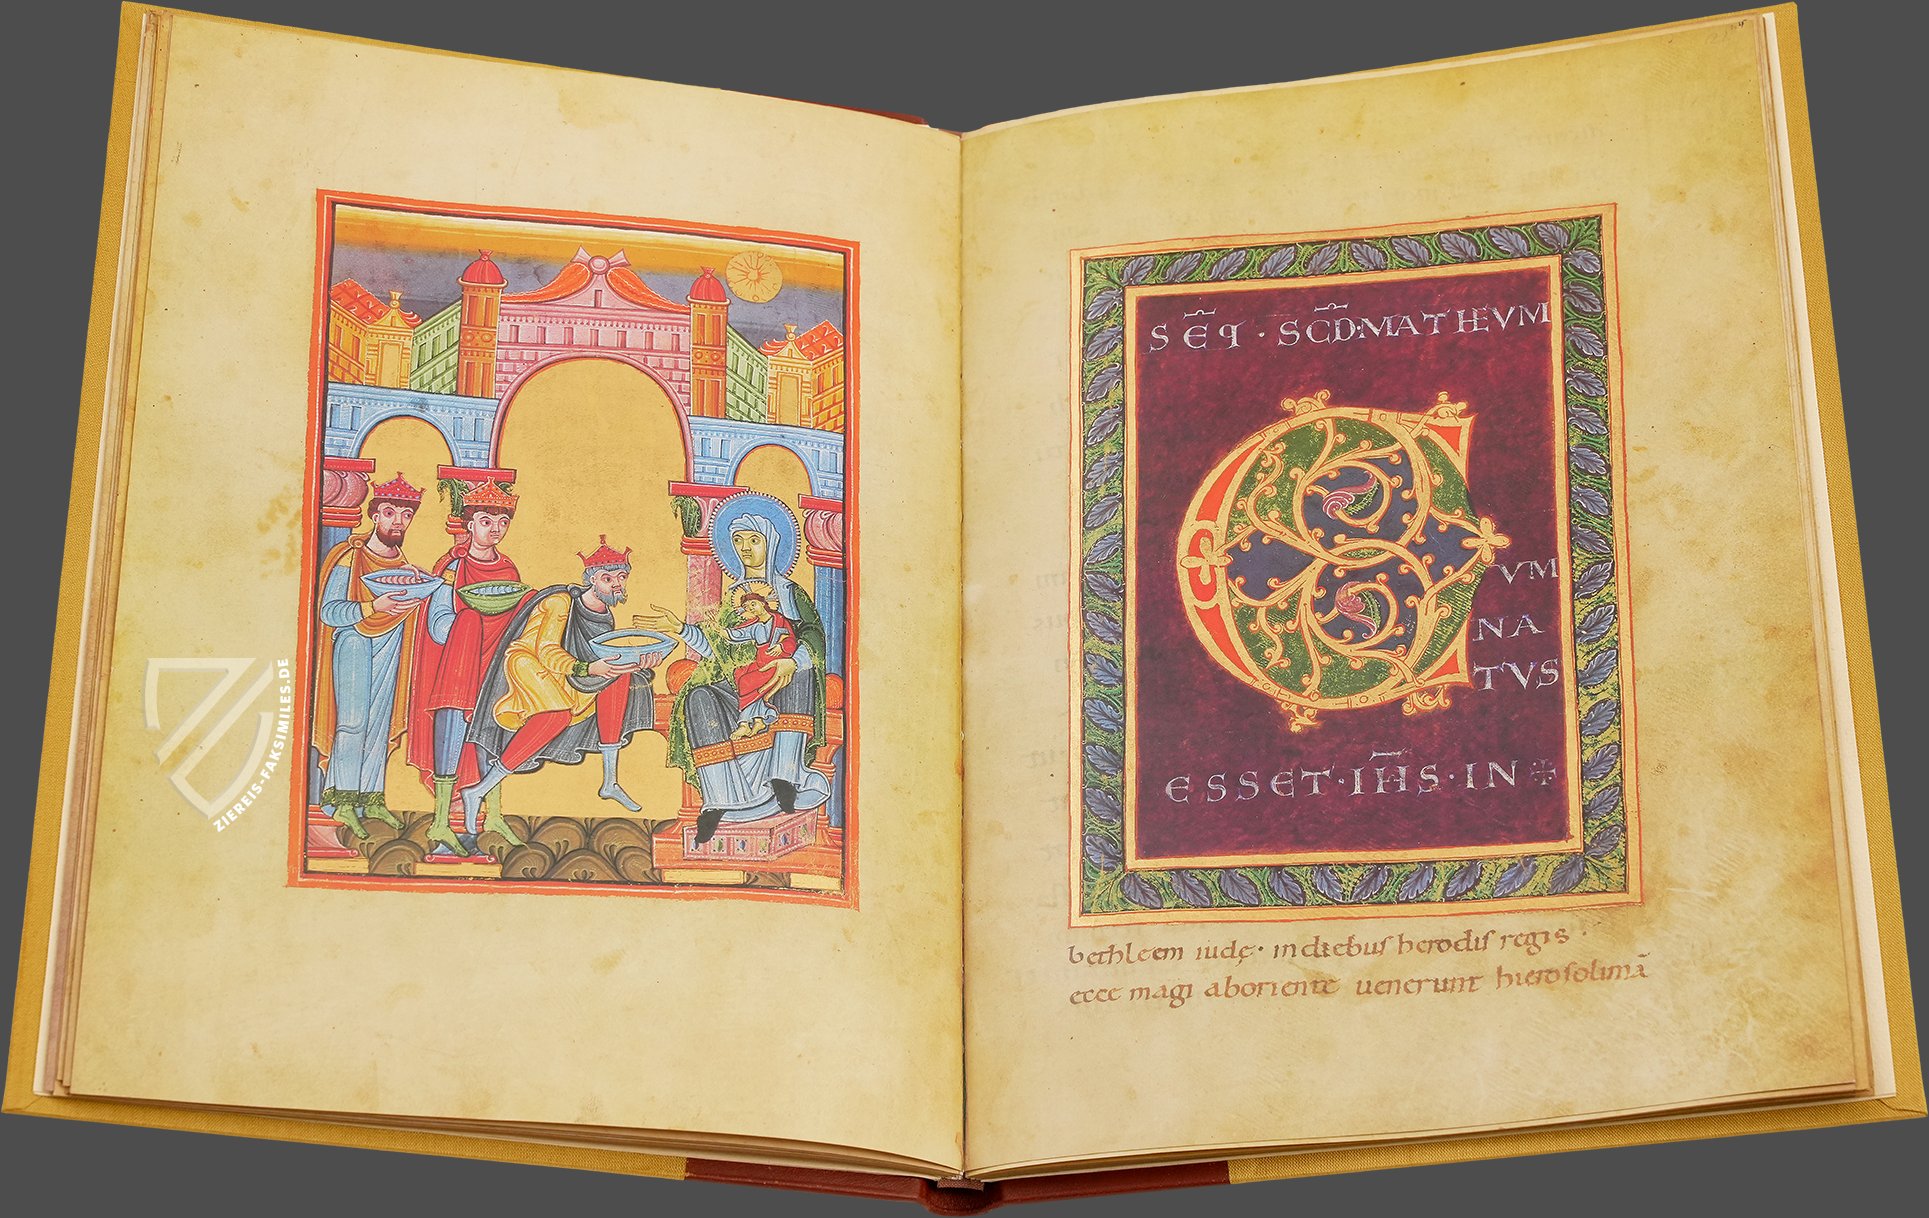 ZIEREIS-FAKSIMILES.DE
SEQ · SCD·MATHEVM
C
VM
NA
TVS
ESSET·IHS·IN
bethleem iudę· indiebus herodis regis·
ecce magi aboriente uenerunt hierosolimā